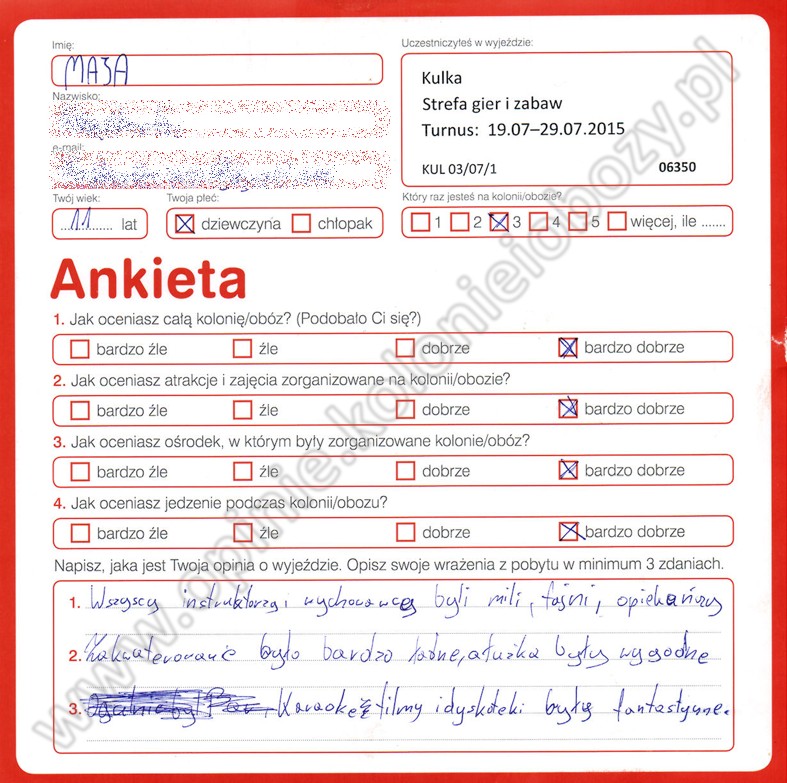 Imię:
MAJA
Nazwisko:
e-mail:
Twój wiek:
11 lat
Twoja płeć:
dziewczyna chłopak
Uczestniczyłeś w wyjeździe:
Kulka
Strefa gier i zabaw
Turnus: 19.07–29.07.2015
KUL 03/07/1 06350
Który raz jesteś na kolonii/obozie?
1 2 3 4 5 więcej, ile .......
Ankieta
1. Jak oceniasz całą kolonię/obóz? (Podobało Ci się?)
bardzo źle źle dobrze bardzo dobrze
2. Jak oceniasz atrakcje i zajęcia zorganizowane na kolonii/obozie?
bardzo źle źle dobrze bardzo dobrze
3. Jak oceniasz ośrodek, w którym były zorganizowane kolonie/obóz?
bardzo źle źle dobrze bardzo dobrze
4. Jak oceniasz jedzenie podczas kolonii/obozu?
bardzo źle źle dobrze bardzo dobrze
Napisz, jaka jest Twoja opinia o wyjeździe. Opisz swoje wrażenia z pobytu w minimum 3 zdaniach.
1. Wszyscy instruktorzy i wychowawcy byli mili, fajni, opiekańczy
2. Zakwaterowanie było bardzo ładne, a łużka były wygodne
3. Karaoke filmy i dyskoteki były fantastyczne.
www.opinie.kolonieiobozy.pl